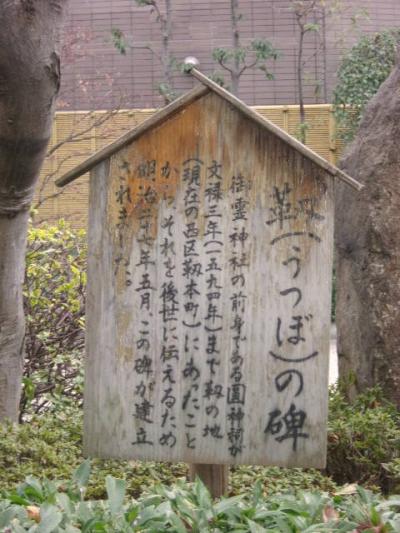 靱(うつぼ)の碑
御霊神社の前身である圓神祠が
文禄三年(一五九四年)まで靱の地
(現在の西区靱本町)にあったこと
から、それを後世に伝えるため
明治二十七年五月、この碑が建立
されました。